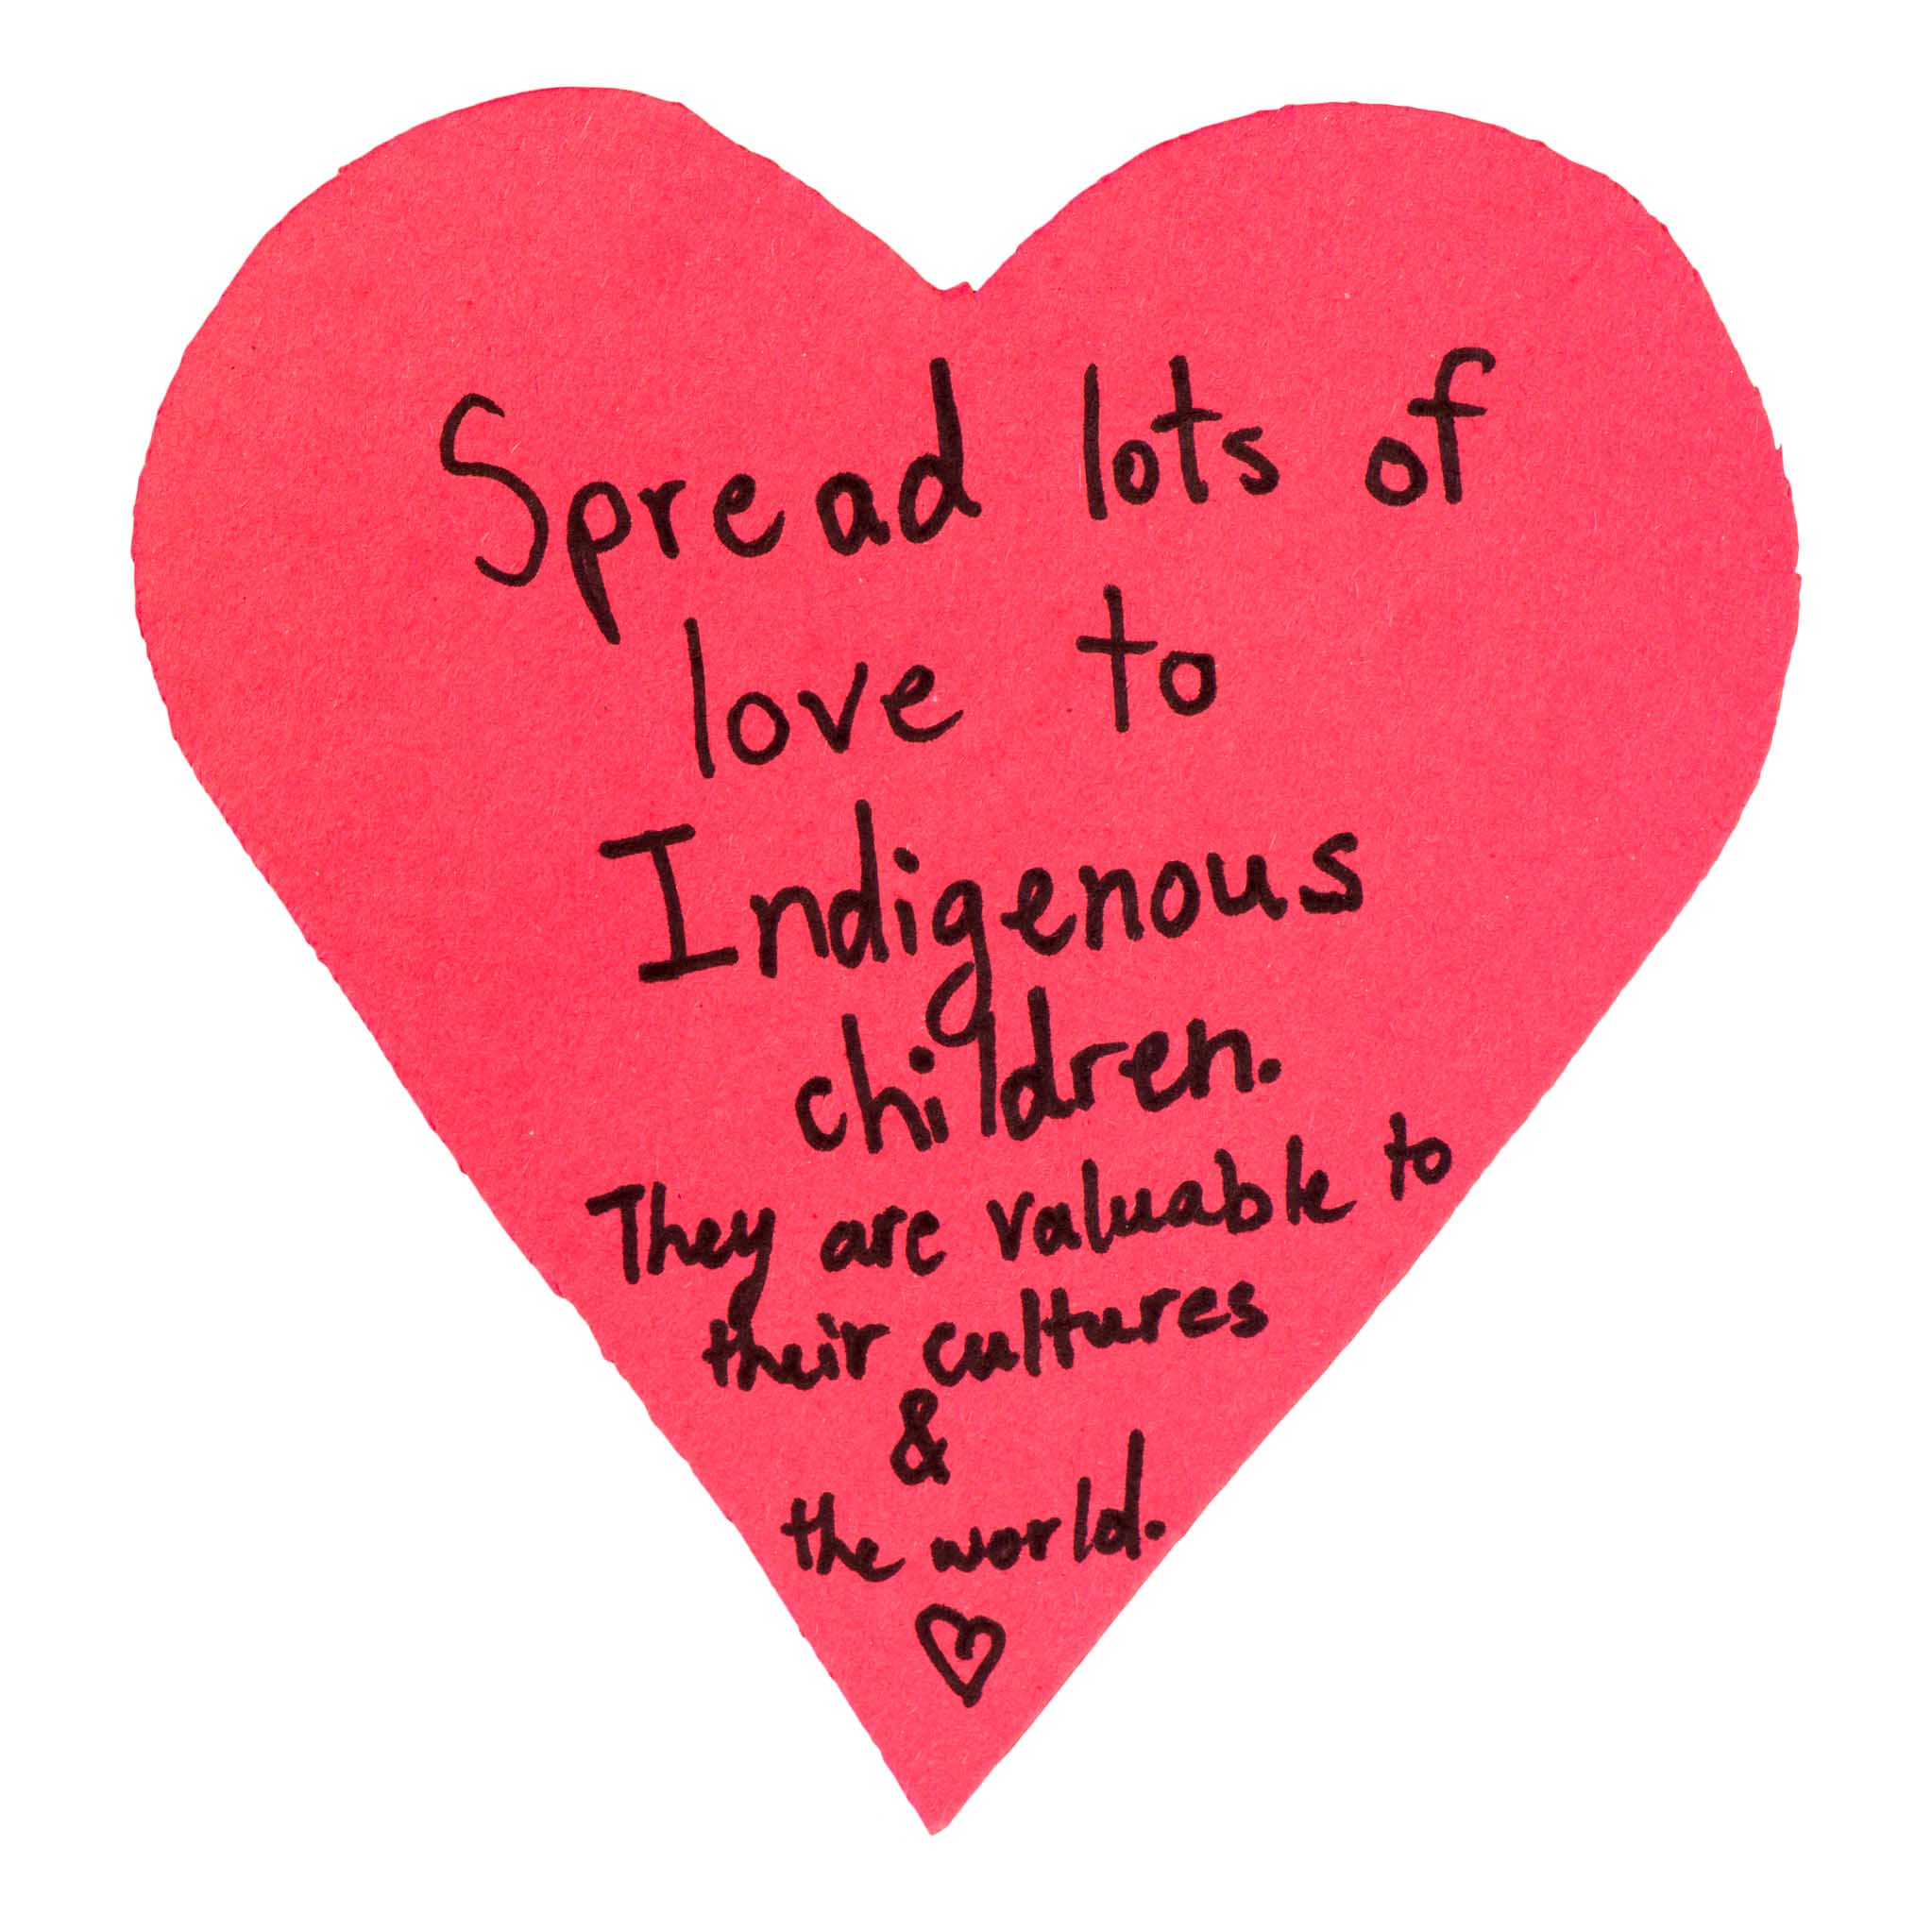 Spread lots of
love to
Indigenous
children.
They are valuable to
their cultures
&
the world.